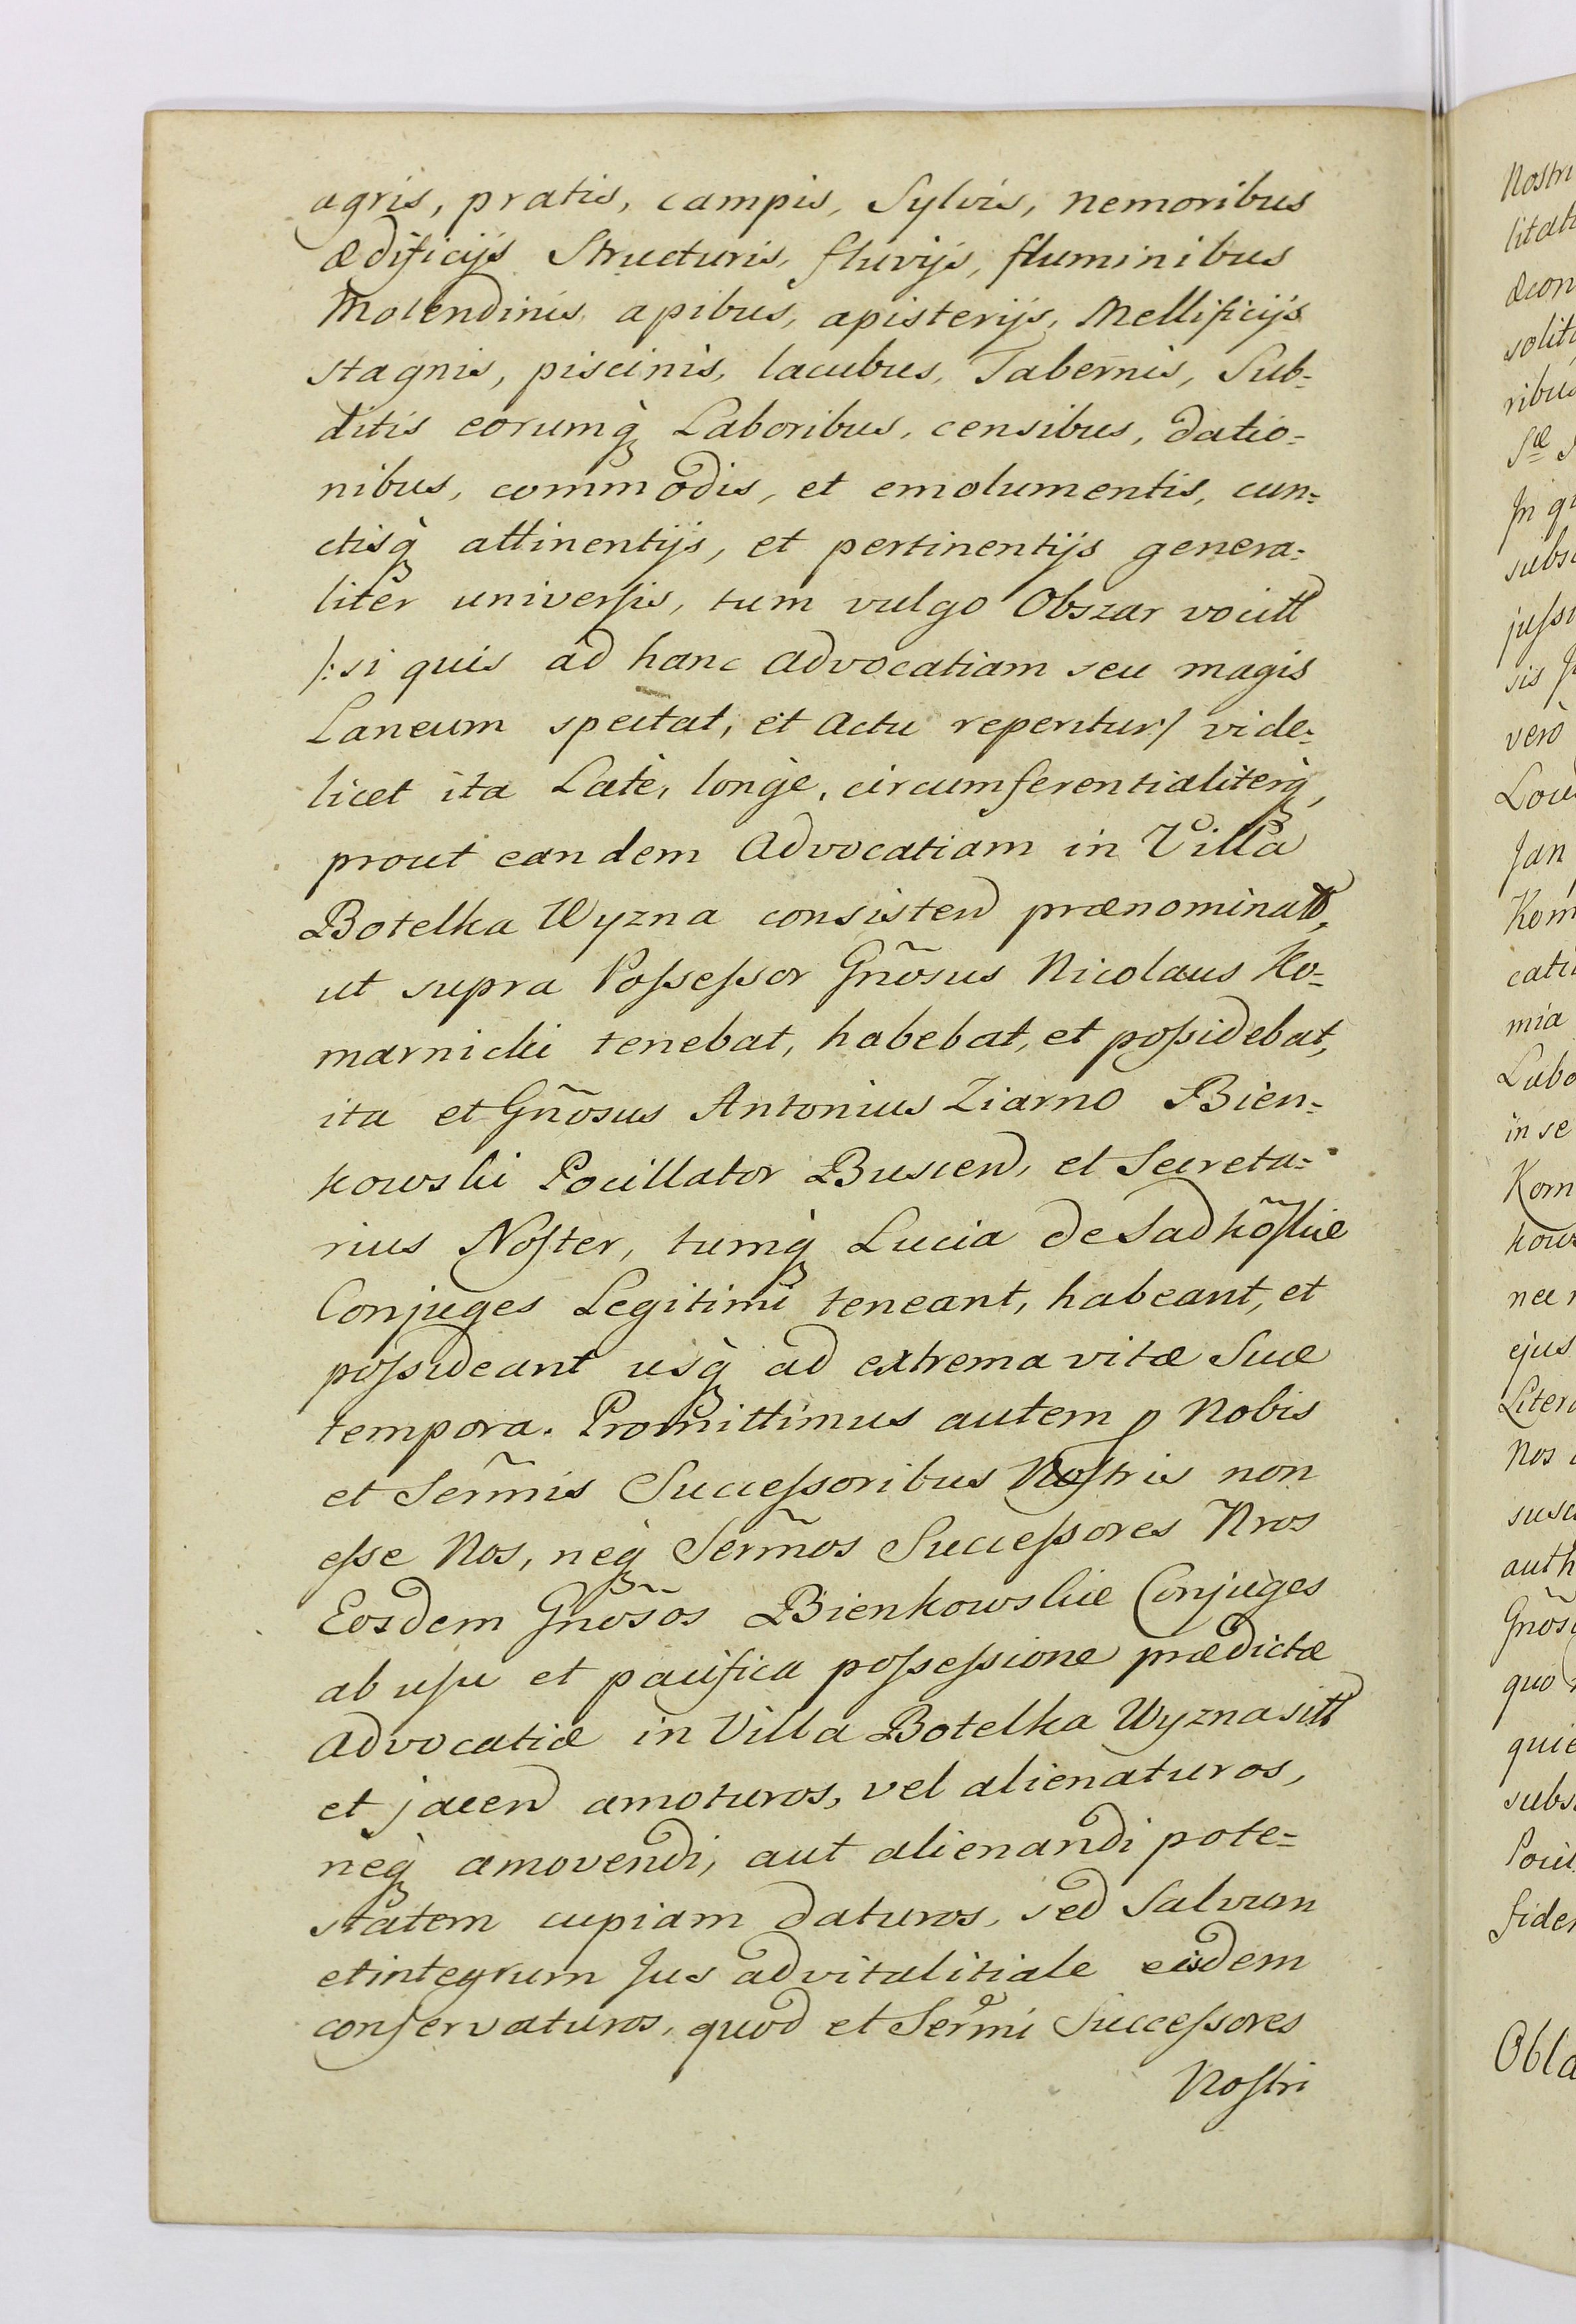 agris, pratis, campis, Sylvis, nemoribus
ædificijs Structuris, fluvijs, fluminibus
Molendinis, apibus, apisterijs, Mellificijs
stagnis, piscinis, lacubus, Tabernis, Sub=
ditis eorumq̀ Laboribus, censibus, datio=
nibus, commodis, et emolumentis, cun=
ctisq̀ attinentijs, et pertinentijs genera=
liter universis, tum vulgo Obszar vocitt
/: si quis ad hanc advocatiam seu magis
Laneum spectat, et actu reperitur :/ vide=
licet ita Latè, longè, circumferentialiterq̀,
prout eandem Advocatiam in Villa
Botelka Wyzna consisten prænominatt,
ut supra Possessor Gñosus Nicolaus Ko=
marnicki tenebat, habebat, et possidebat,
ita et Gñosus Antonius Ziarno Bien=
kowski Pocillator Buscen, et Secreta=
rius Noster, tumq̀ Lucia de Sadkõskie
Conjuges Legitimi teneant, habeant, et
possideant usq̀ ad extrema vitæ Suæ
tempora. Promittimus autem p Nobis
et Serm̃is Successoribus Nostris non
esse Nos, neq̀ Serm̃os Successores Nros
Eosdem Gños̃os Bienkowskie Conjuges
ab usu et pacifica possessione prædictæ
Advocatiæ in Villa Botelka Wyzna sitt
et jacen amoturos, vel alienaturos,
neq̀ amovendi, aut alienandi pote=
statem cupiam daturos, sed Salvum
et integrum Jus advitalitiale eisdem
conservaturos, quod et Serm̃i Successores
Nostri
Nostri
litat
æcon
solit
ribus
Sæ
In
subs
jussu
sis
verò
Jan
Kom
cati
mia
Lubo
in se
Korn
kows
nec
ejus
Liter
Nos
susc
auth
Gños
quo
quie
subs
Pocil
fide
Obla